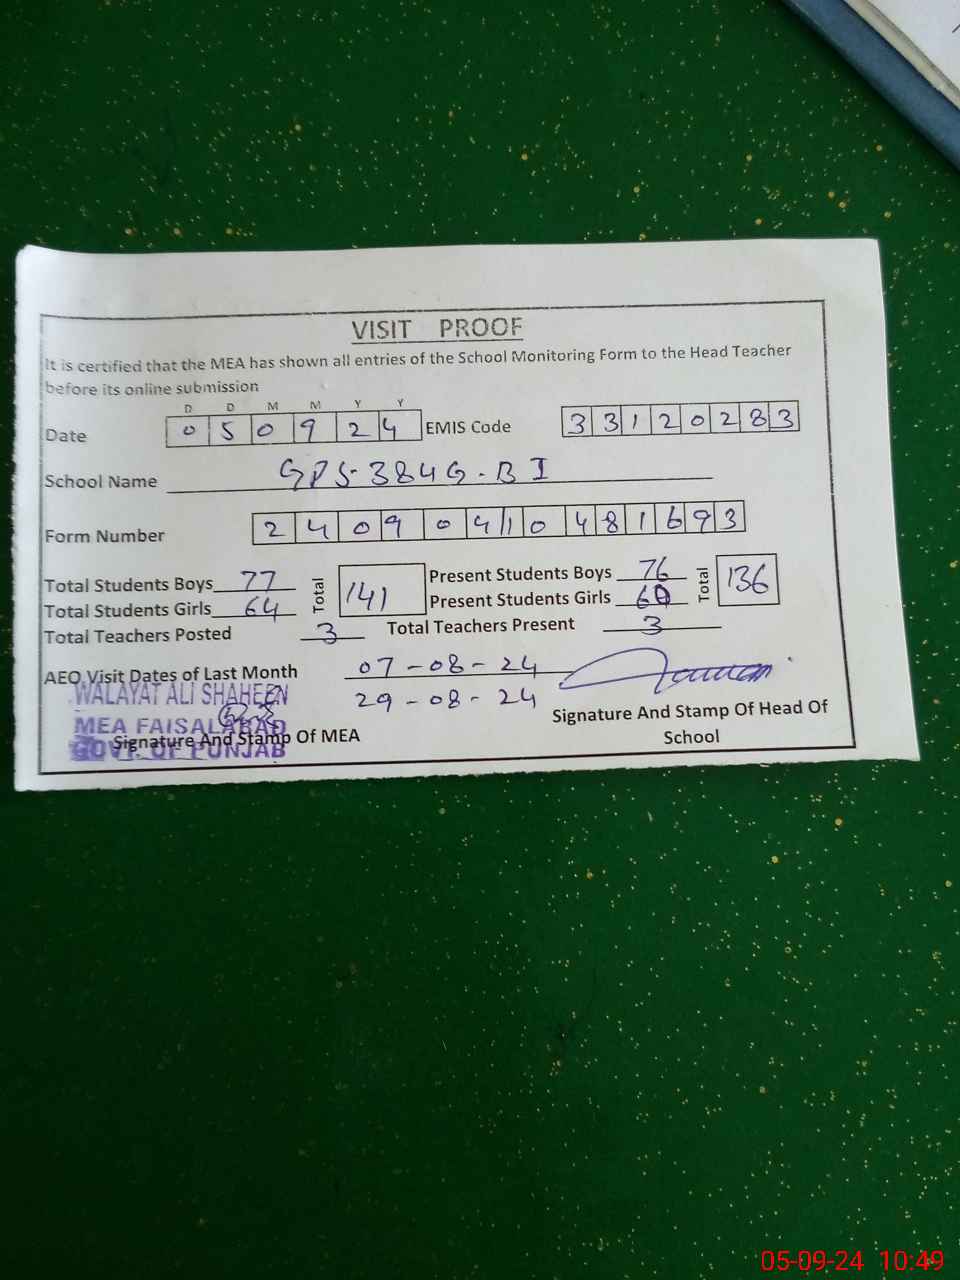 VISIT PROOF
It is certified that the MEA has shown all entries of the School Monitoring Form to the Head Teacher
before its online submission
D D M M Y Y
Date 0 5 0 9 2 4 EMIS Code 3 3 1 2 0 2 8 3
School Name GPS-384G-B I
Form Number 2 4 0 9 0 4 10 4 8 1 6 9 3
Total Students Boys 77 Total 141 Present Students Boys 76 Total 136
Total Students Girls 64 Present Students Girls 60
Total Teachers Posted 3 Total Teachers Present 3
AEO Visit Dates of Last Month 07-08-24
29-08-24
WALAYAT ALI SHAHEEN
MEA FAISALABAD
GOVT. OF PUNJAB
Signature And Stamp Of MEA
Signature And Stamp Of Head Of
School
05-09-24 10:49